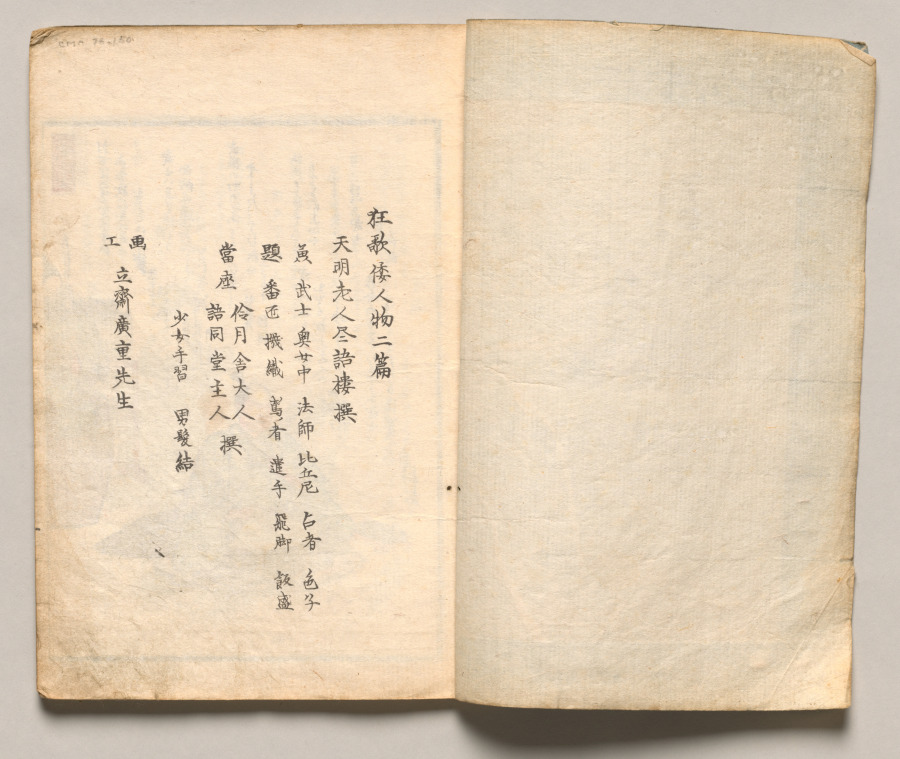 狂歌倭人物二篇
天明老人尽語樓撰
兼題 武士 奥女中 法師 比丘尼 占者 色子
番匠 機織 鳶者 遣手 飛脚 飯盛
當座 伶月舎大人
語同堂主人 撰
少女手習 男髪結
画工 立齋廣重先生